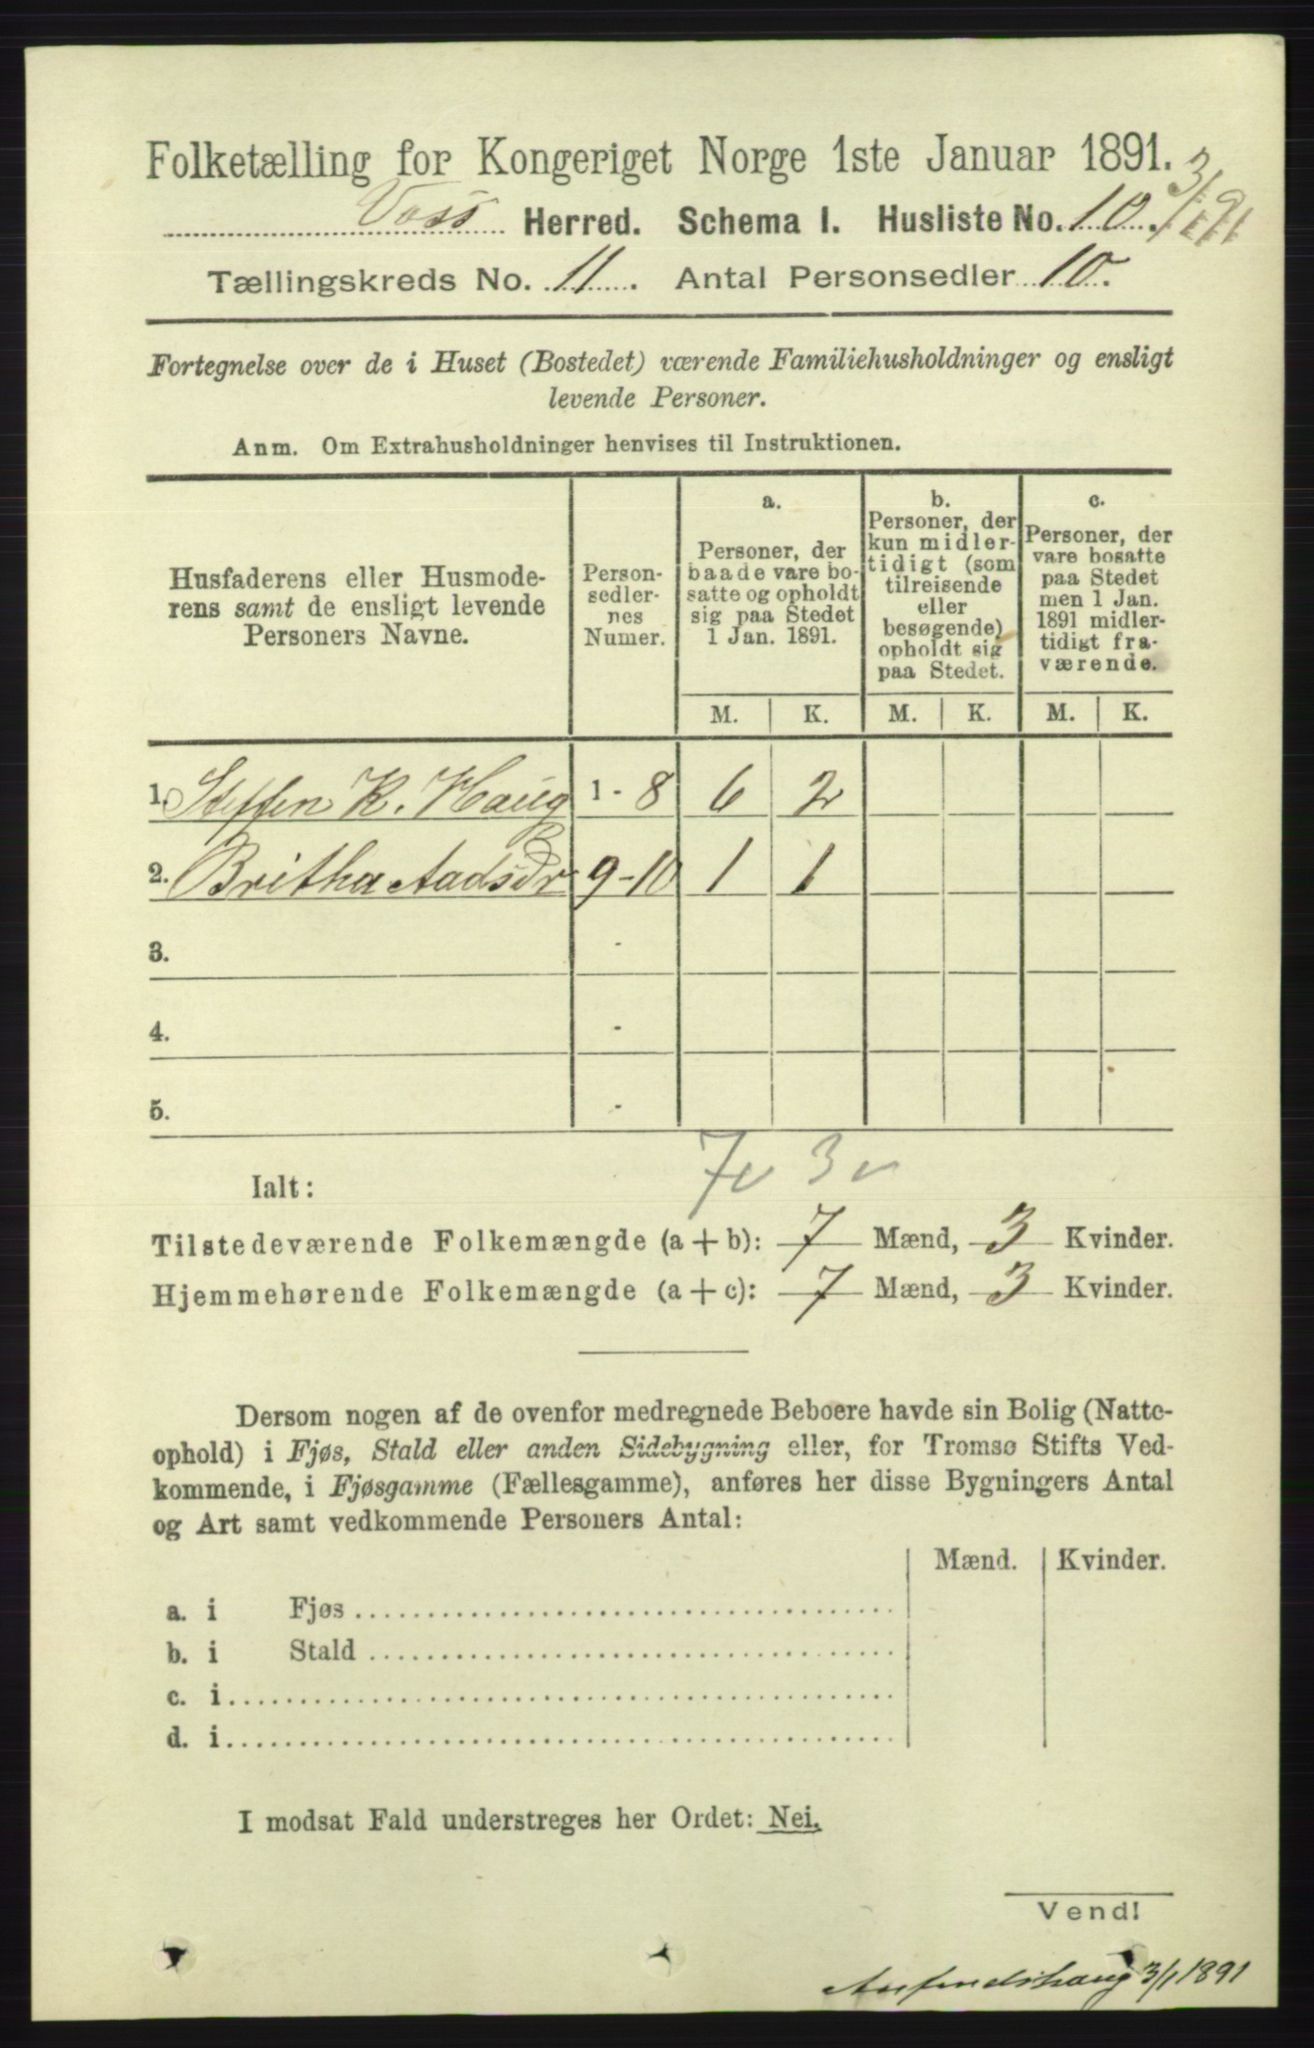 Folketælling for Kongeriget Norge 1ste Januar 1891.
Voss Herred. Schema I. Husliste No. 10. 3/1 91
Tællingskreds No. 11. Antal Personsedler 10.
Fortegnelse over de i Huset (Bostedet) værende Familiehusholdninger og ensligt
levende Personer.
Anm. Om Extrahusholdninger henvises til Instruktionen.
Husfaderens eller Husmode-
rens samt de ensligt levende
Personers Navne.
Person-
sedler-
nes
Numer.
a.
Personer, der
baade vare bo-
satte og opholdt
sig paa Stedet
1 Jan. 1891.
b.
Personer, der
kun midler-
tidigt (som
tilreisende
eller
besøgende)
opholdt sig
paa Stedet.
c.
Personer, der
vare bosatte
paa Stedet
men 1 Jan.
1891 midler-
tidigt fra-
værende.
M. K. M. K. M. K.
1. Steffen K. Haug 1 - 8 6 2
2. Britha Aadsdr 9 - 10 1 1
3. -
4. -
5. -
7 v 3 v
Ialt:
Tilstedeværende Folkemængde (a + b): 7 Mænd, 3 Kvinder.
Hjemmehørende Folkemængde (a + c): 7 Mænd, 3 Kvinder.
Dersom nogen af de ovenfor medregnede Beboere havde sin Bolig (Natte-
ophold) i Fjøs, Stald eller anden Sidebygning eller, for Tromsø Stifts Ved-
kommende, i Fjøsgamme (Fællesgamme), anføres her disse Bygningers Antal
og Art samt vedkommende Personers Antal:
Mænd. Kvinder.
a. i Fjøs
b. i Stald
c. i
d. i
I modsat Fald understreges her Ordet: Nei.
Vend!
3/1 1891